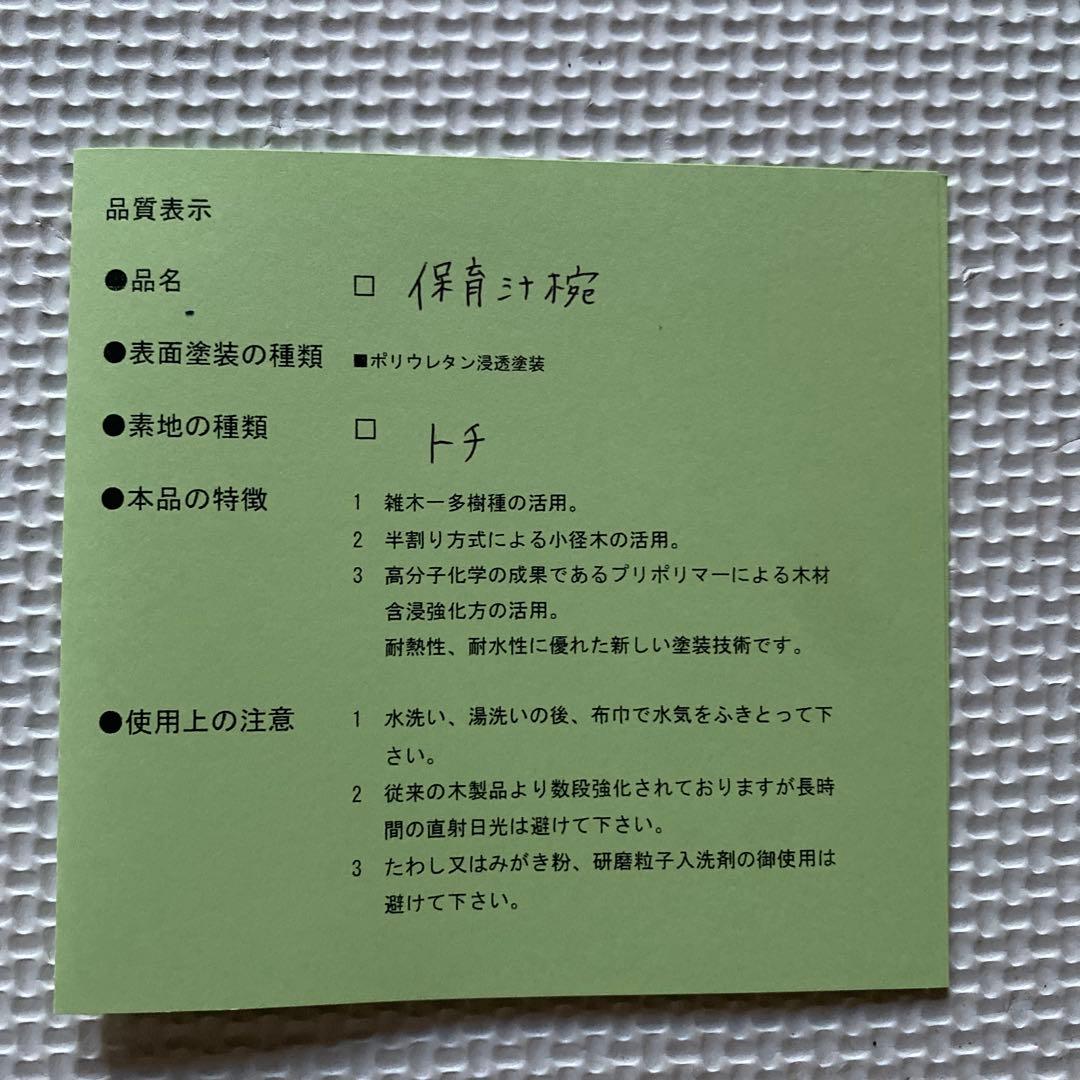 品質表示
●品名 □ 保育汁椀
●表面塗装の種類 ■ポリウレタン浸透塗装
●素地の種類 □ トチ
●本品の特徴 1 雑木一多樹種の活用。
2 半割り方式による小径木の活用。
3 高分子化学の成果であるプリポリマーによる木材
含浸強化方の活用。
耐熱性、耐水性に優れた新しい塗装技術です。
●使用上の注意 1 水洗い、湯洗いの後、布巾で水気をふきとって下
さい。
2 従来の木製品より数段強化されておりますが長時
間の直射日光は避けて下さい。
3 たわし又はみがき粉、研磨粒子入洗剤の御使用は
避けて下さい。